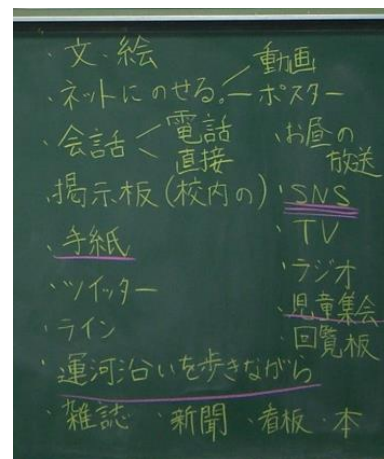 ・文、絵
・ネットにのせる。＜動画
ーポスター
・会話＜電話
直接
・お昼の
放送
・掲示板(校内の)
・SNS
・手紙
・TV
・ラジオ
・ツイッター
・児童集会
・ライン
・回覧板
・運河沿いを歩きながら
・雑誌 ・新聞 ・看板 ・本